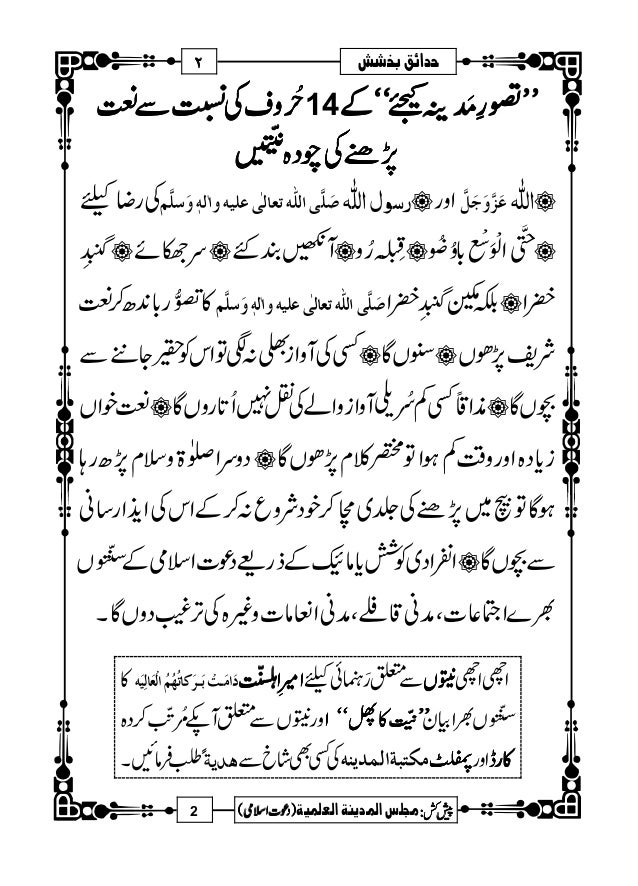 حدائق بخشش
۲
’’تصورِ مَدینہ کیجئے‘‘ کے 14 حُروف کی نسبت سے نعت
پڑھنے کی چودہ نیّتیں
۞اللہ عَزَّوَجَلَّ اور ۞رسول اللہ صَلَّی اللہ تعالٰی علیہ والہٖ وَسلَّم کی رضا کیلئے
۞حَتَّی الْوَسْع باوُضُو ۞ قِبلہ رُو ۞آنکھیں بند کئے ۞ سر جھکائے ۞ گنبدِ
خضرا ۞ بلکہ مکینِ گنبدِ خضرا صَلَّی اللہ تعالٰی علیہ والہٖ وَسلَّم کا تصوُّر باندھ کر نعت
شریف پڑھوں ۞ سنوں گا ۞ کسی کی آواز بھلی نہ لگی تو اس کو حقیر جاننے سے
بچوں گا ۞ مذاقاً کسی کم سُریلی آواز والے کی نقل نہیں اُتاروں گا ۞ نعت خواں
زیادہ اور وقت کم ہوا تو مختصر کلام پڑھوں گا ۞ دوسرا صلوٰۃ وسلام پڑھ رہا
ہوگا تو بیچ میں پڑھنے کی جلدی مچا کر خود شروع نہ کر کے اس کی ایذا رسانی
سے بچوں گا ۞ انفرادی کوشش یا مائیک کے ذریعے دعوت اسلامی کے سنّتوں
بھرے اجتماعات، مدنی قافلے، مدنی انعامات وغیرہ کی ترغیب دوں گا ۔
اچھی اچھی نیتوں سے متعلق رَہنمائی کیلئے امیرِ اہلسنّت دَامَتْ بَرَکاتُهُمُ الْعَالِیَه کا
سنّتوں بھرا بیان ’’نیّت کا پھل‘‘ اور نیتوں سے متعلق آپکے مُرتّب کردہ
کارڈ اور پمفلٹ مکتبة المدینه کی کسی بھی شاخ سے هدیةً طلب فرمائیں۔
پیش کش: مجلس المدینة العلمیة (دعوتِ اسلامی)
2